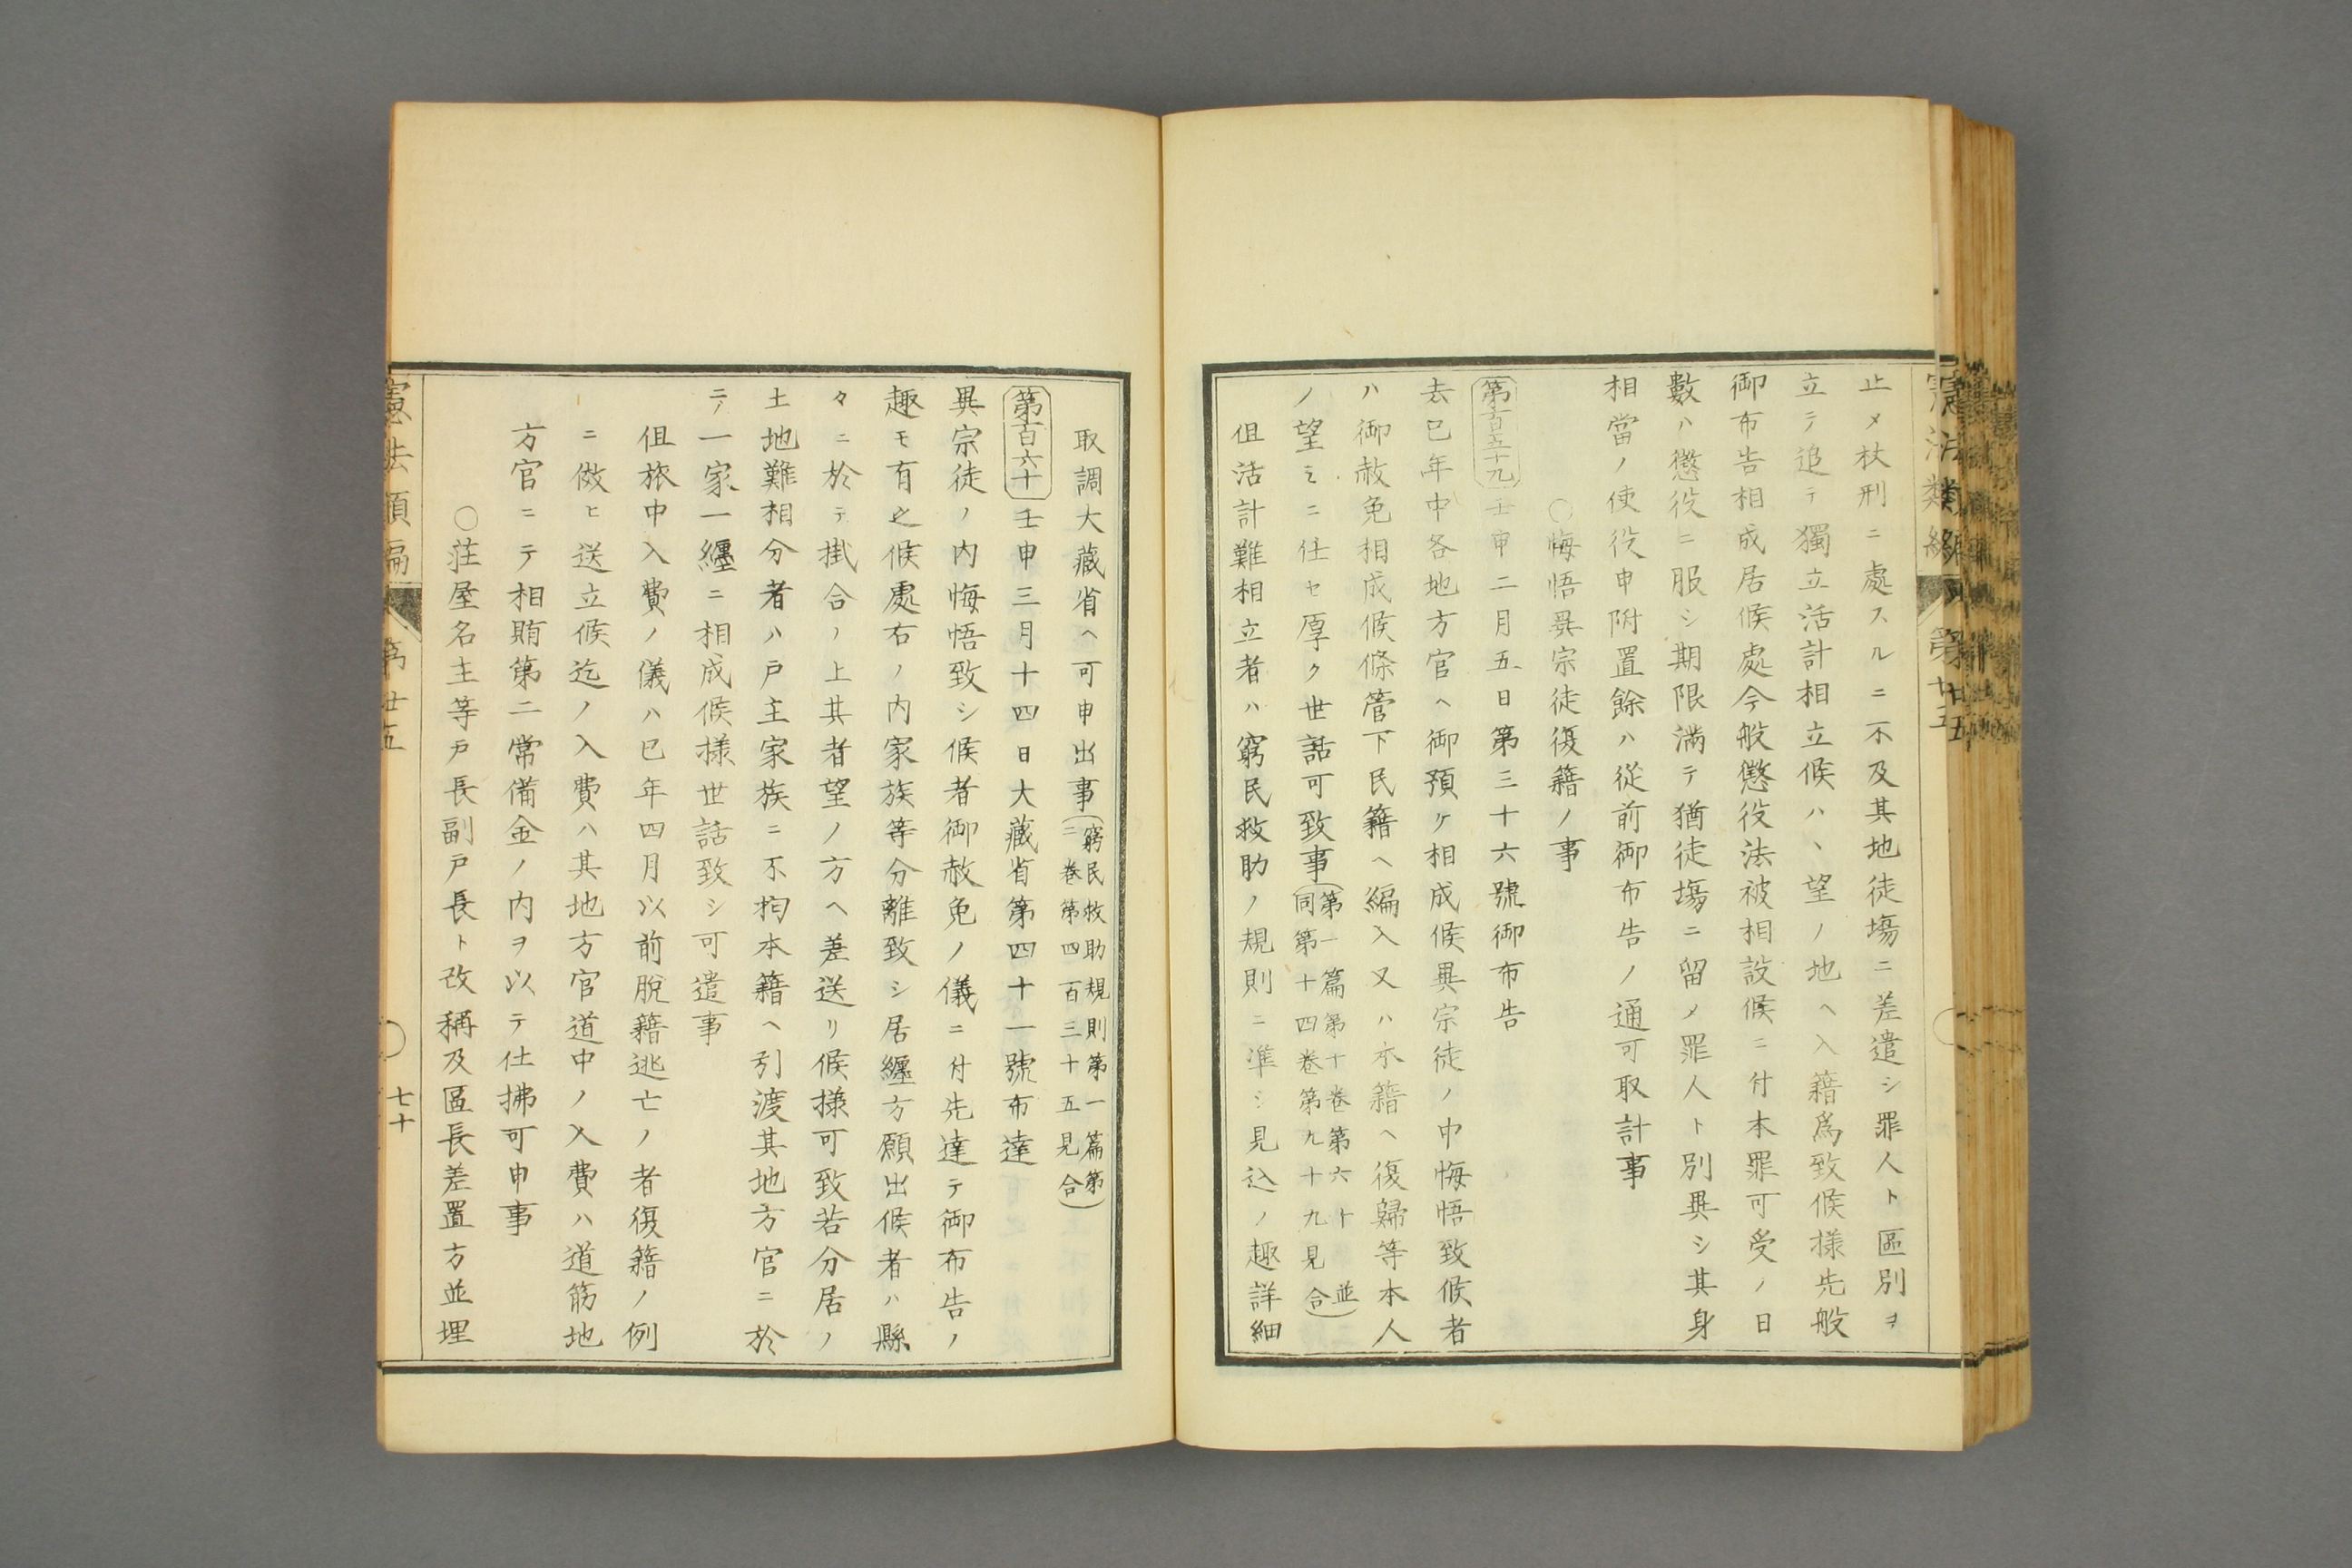 止メ杖刑ニ處スルニ不及其地徒塲ニ差遣シ罪人ト區別ヲ
立テ追テ獨立活計相立候ハヽ望ノ地ヘ入籍爲致候樣先般
御布告相成居候處今般懲役法被相設候ニ付本罪可受ノ日
數ハ懲役ニ服シ期限滿テ猶徒塲ニ留メ罪人ト別異シ其身
相當ノ使役申附置餘ハ從前御布告ノ通可取計事
○悔悟異宗徒復籍ノ事
第百五十九壬申二月五日第三十六號御布告
去巳年中各地方官ヘ御預ケ相成候異宗徒ノ中悔悟致候者
ハ御赦免相成候條管下民籍ヘ編入又ハ本籍ヘ復歸等本人
ノ望ミニ任セ厚ク世話可致事(第一篇第十卷第六十並
同第十四卷第九十九見合)
但活計難相立者ハ窮民救助ノ規則ニ準シ見込ノ趣詳細
取調大藏省ヘ可申出事(窮民救助規則第一篇第
二卷第四百三十五見合)
第百六十壬申三月十四日大藏省第四十一號布達
異宗徒ノ內悔悟致シ候者御赦免ノ儀ニ付先達テ御布告ノ
趣モ有之候處右ノ內家族等分離致シ居纒方願出候者ハ縣
々ニ於テ掛合ノ上其者望ノ方ヘ差送リ候樣可致若分居ノ
土地難相分者ハ戸主家族ニ不拘本籍ヘ引渡其地方官ニ於
テ一家一纒ニ相成候樣世話致シ可遣事
但旅中入費ノ儀ハ巳年四月以前脫籍逃亡ノ者復籍ノ例
ニ倣ヒ送立候迄ノ入費ハ其地方官道中ノ入費ハ道筋地
方官ニテ相賄第二常備金ノ內ヲ以テ仕拂可申事
○荘屋名主等戸長副戸長ト改稱及區長差置方並埋
憲法類編
第廿五
七十